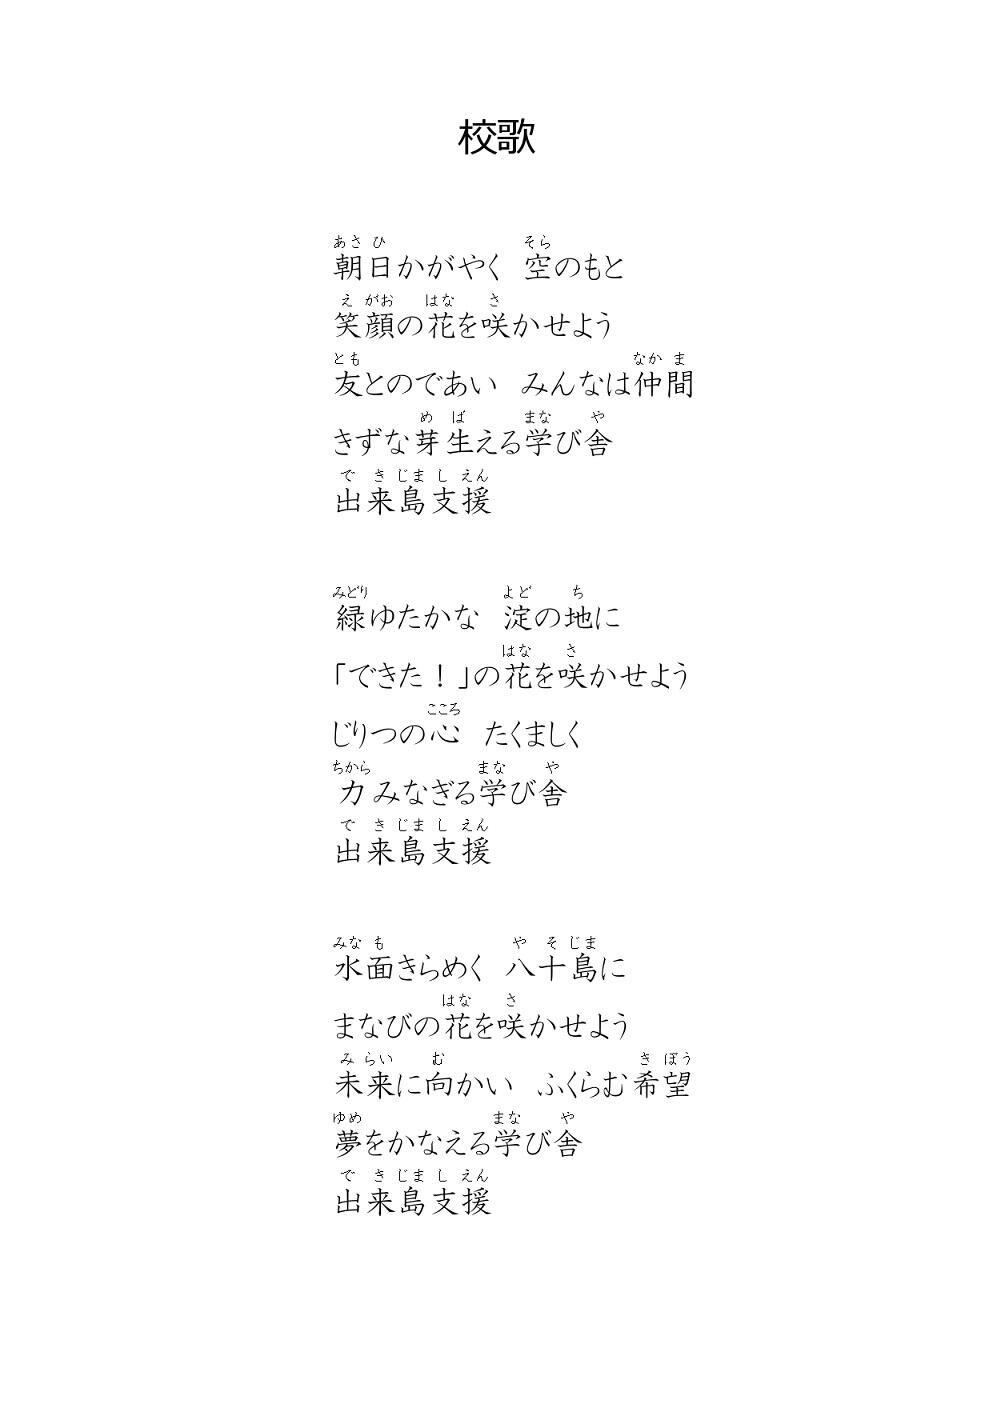 校歌
あさ ひ そら
朝日かがやく 空のもと
え がお はな さ
笑顔の花を咲かせよう
とも なか ま
友とのであい みんなは仲間
め ば まな や
きずな芽生える学び舎
で き じま し えん
出来島支援
みどり よど ち
緑ゆたかな 淀の地に
はな さ
「できた！」の花を咲かせよう
こころ
じりつの心 たくましく
ちから まな や
力みなぎる学び舎
で き じま し えん
出来島支援
みな も や そ じま
水面きらめく 八十島に
はな さ
まなびの花を咲かせよう
み らい む き ぼう
未来に向かい ふくらむ希望
ゆめ まな や
夢をかなえる学び舎
で き じま し えん
出来島支援